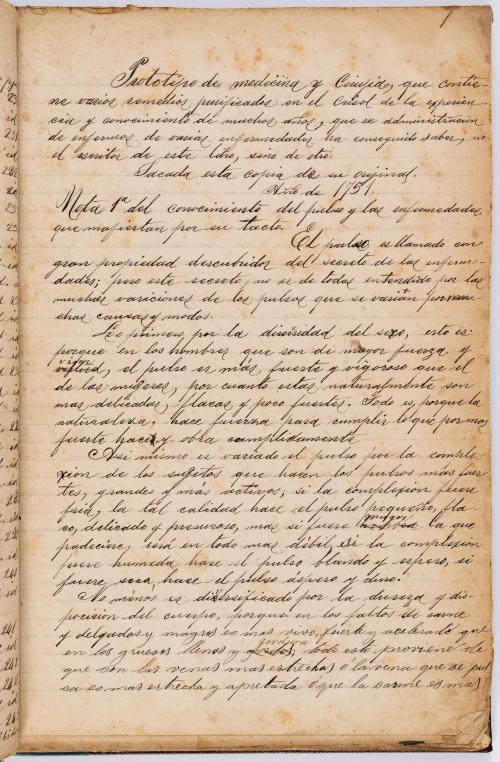 1
Prototipo de medicina y Cirujia, que contie-
ne varios remedios purificados en el Crisol de la experien-
cia y conocimiento de muchos años, que en administración
de enfermos de varias enfermedades ha conseguido saber, no
el escritor de este libro, sino de otro.
Sacada esta copia de su orijinal.
Año de 1751.
Nota 1ª del conocimiento del pulso y las enfermedades
que mafiestan por su tacto.
El pulso es llamado con
gran propiedad descubridor del secreto de las enferme-
dades; pero este secreto, no es de todas entendido por las
muchas variciones de los pulsos que se varian por mu-
chas causas y modos.
Lo primero por la diversidad del sexo, esto es:
porque en los hombres que son de mayor fuerza y
vigor
el pulso es mas fuerte y vigoroso que el
de las mugeres, por cuanto estas naturalmente son
mas delicadas, flacas y poco fuentes. Todo es, porque la
naturaleza, hace fuerza para cumplir lo que por mas
fuerte hace y obra cumplidamente
Asi mismo es variado el pulso por la comple-
xion de los sugetos que hacen los pulsos mas fuer-
tes, grandes y más activos; si la complexion fuere
fria, la tal calidad hace el pulso pequeño, fla
co, delicado y presuroso, mas si fuere la que
padeciere, será en todo mas débil, si la complexion
fuere humeda hace el pulso blando y espeso, si
fuere seca, hace el pulso áspero y duro.
No menos es diversificado por la dureza y dis-
posicion del cuerpo, porque en los faltos de carne
y delgados y magros es mas vivo, fuerte y acelerado que
gordura
en los gruesos llenos y todo esto proviene de
que son las venas mas estrechas o la vena que se pul
sa es mas estrecha y apretada o que la carne es mas